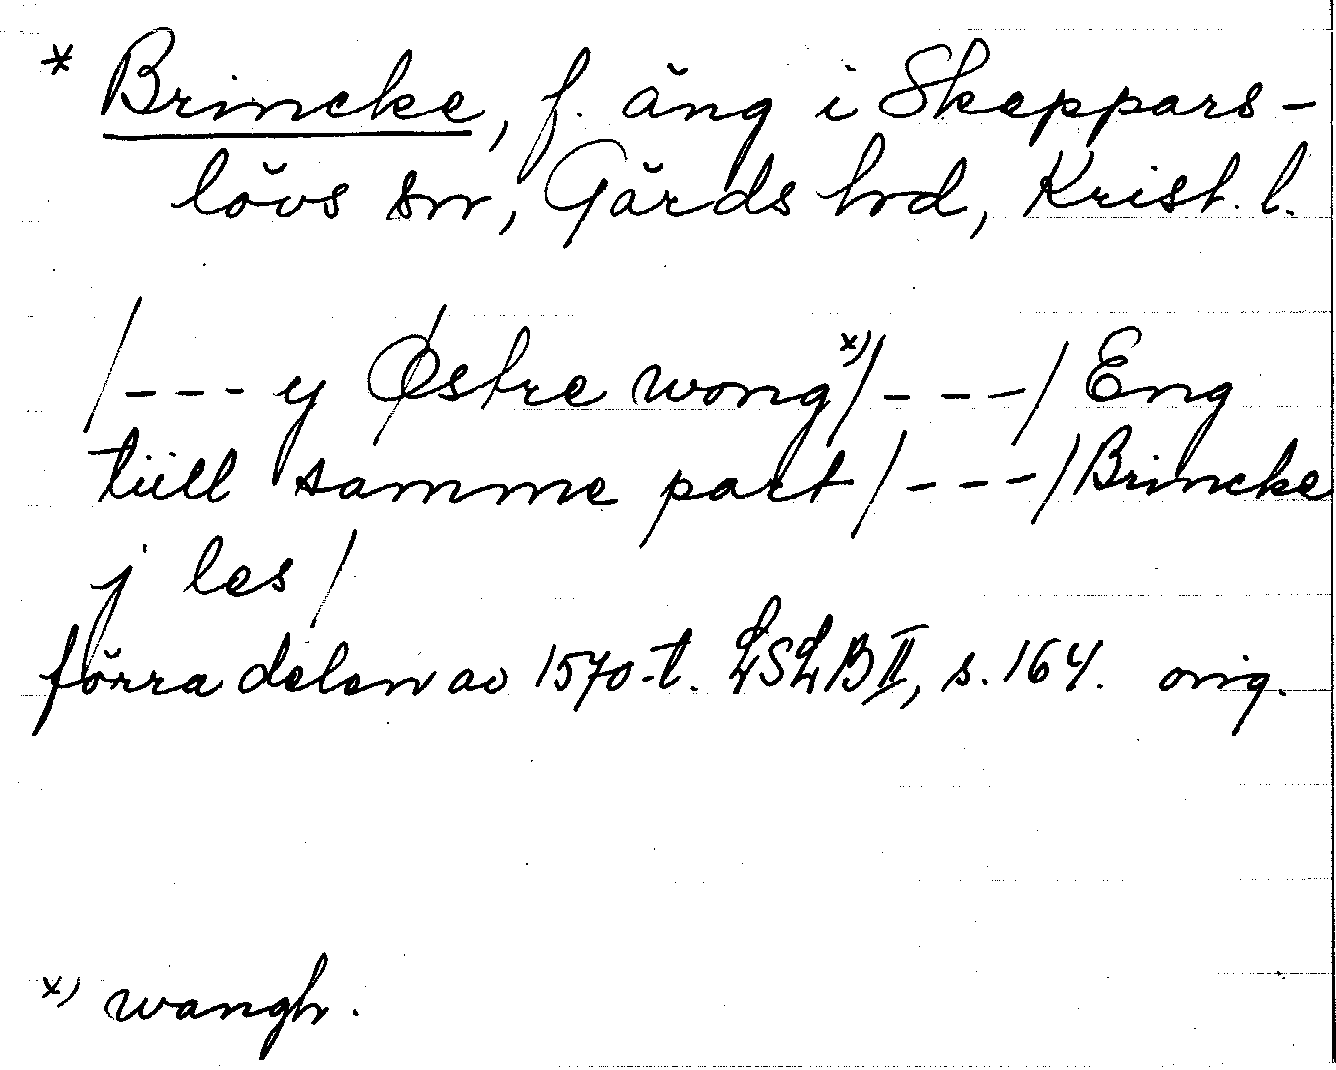 * Brincke, f. äng i Skeppars-
lövs sn, Gärds hrd, Krist. l.
/--- y Østre wong x)/---/ Eng
tüll samme part/---/Brincke
j les/
förra delen av 1570-t. LSLB II, s. 164. orig.
x) wangh.